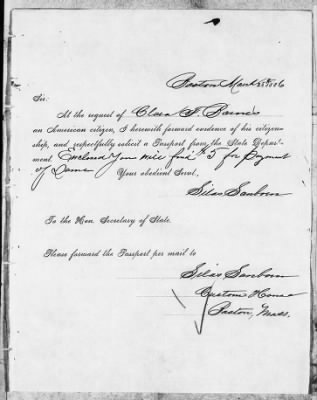 Boston March
Sir:
At the request of Clara F. Barnes
an American citizen, I herewith forward evidence of his citizen-
ship, and respectfully solicit a Passport from the State Depart-
ment Enclosed you will find $5 for payment
of Same
Your obedient Servt,
Silas Sanborn
To the Hon. Secretary of State.
Please forward the Passport per mail to
Silas Sanborn
Custom House
Boston, Mass.